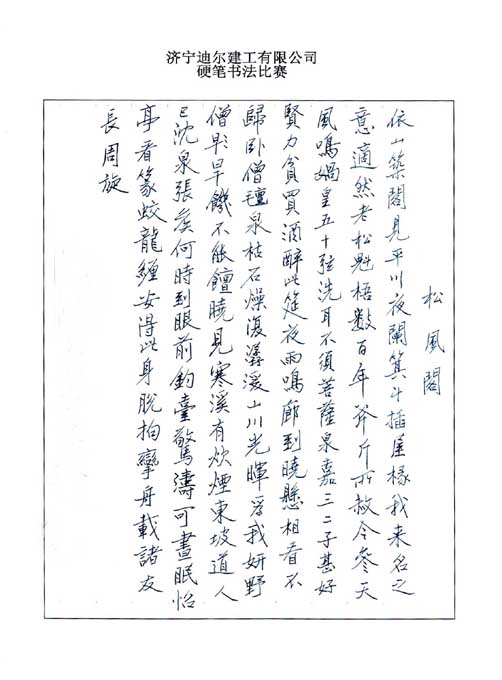 济宁迪尔建工有限公司
硬笔书法比赛
松風閣
依山築閣見平川夜闌箕斗插屋椽我来名之
意適然老松魁梧數百年斧斤所赦今參天
風鳴媧皇五十弦洗耳不須菩薩泉嘉三二子甚好
賢力貧買酒醉此筵夜雨鳴廊到曉懸相看不
歸卧僧氊泉枯石燥復潺湲山川光暉爲我妍野
僧旱饑不能饘曉見寒溪有炊煙東坡道人
已沈泉張侯何時到眼前釣臺驚濤可晝眠怡
亭看篆蛟龍纏安得此身脫拘攣舟載諸友
長周旋